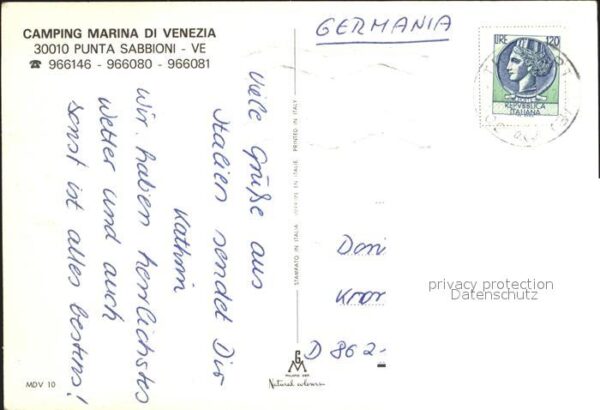 CAMPING MARINA DI VENEZIA
30010 PUNTA SABBIONI - VE
☎ 966146 - 966080 - 966081
GERMANIA
LIRE 120
POSTE
REPVBBLICA
ITALIANA
Viele Grüße aus
Italien sendet Dir
Kathrin
Wir haben herrlichstes
Wetter und auch
sonst ist alles bestens!
STAMPATO IN ITALIA IMPRIME EN ITALIE PRINTED IN ITALY
Dori
Kror
D 862-
privacy protection
Datenschutz
GM
Natural colours
MDV 10